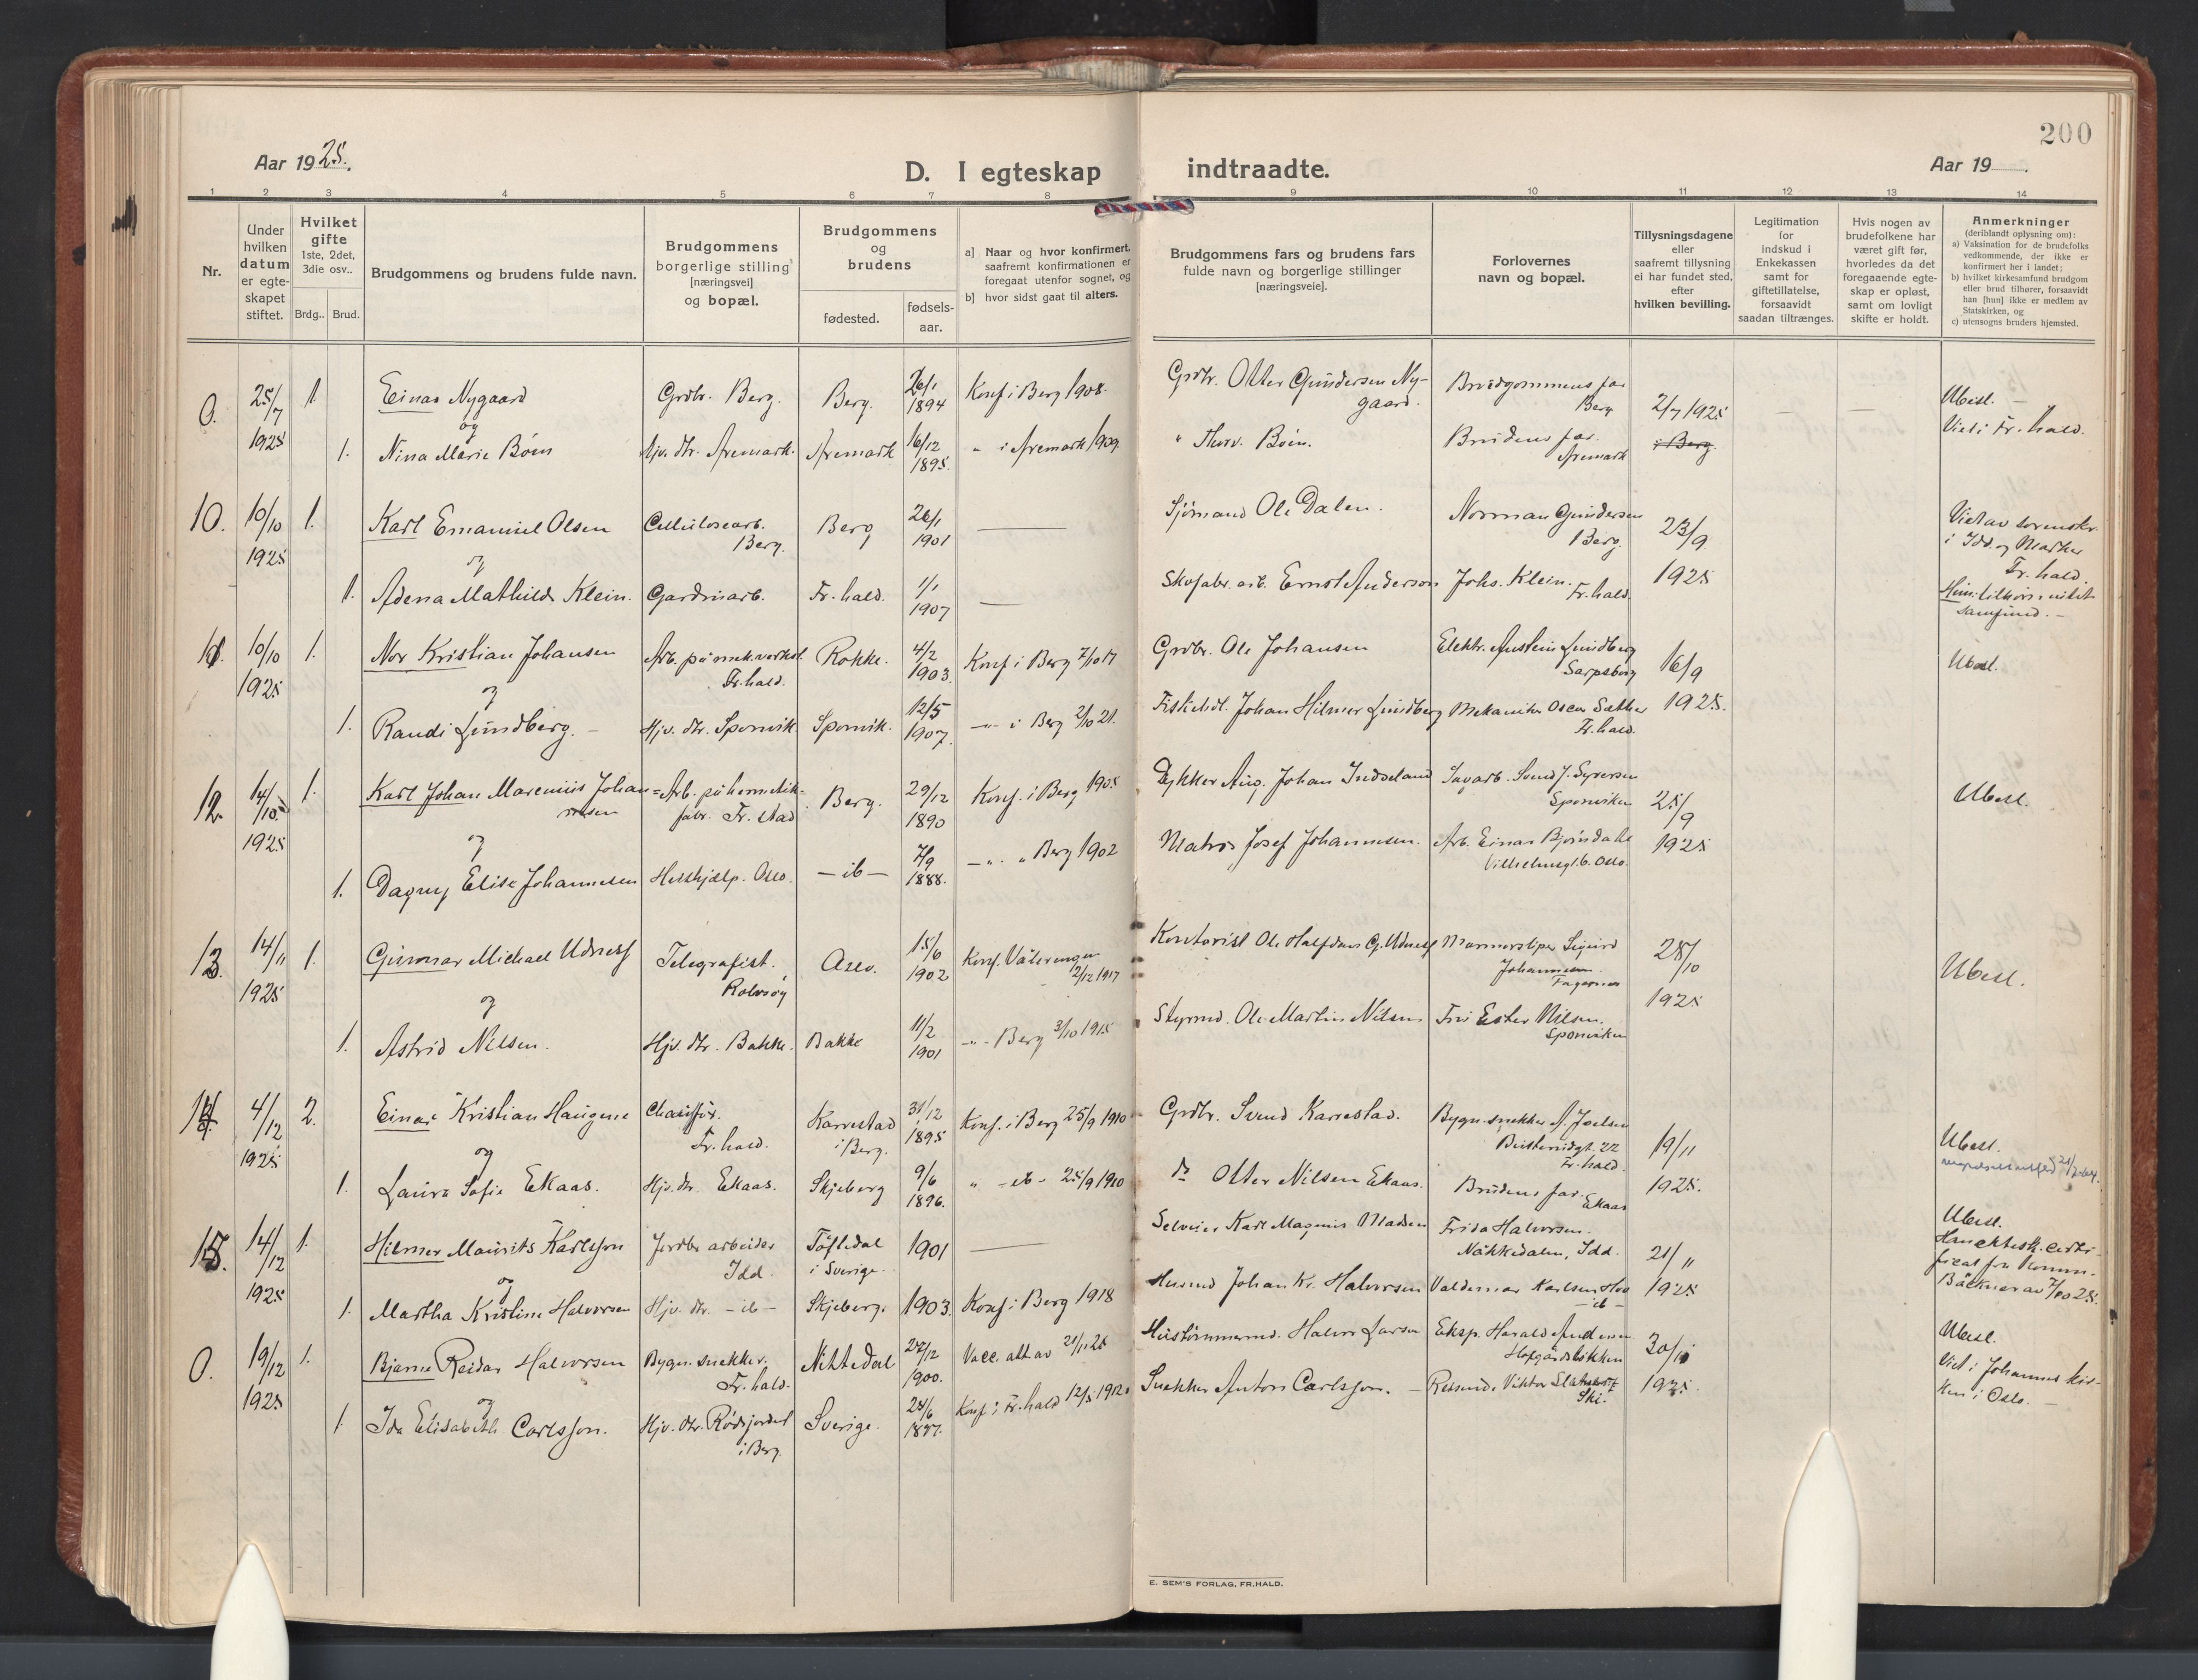 200
Aar 1925.
D. I egteskap indtraadte.
Aar 19
1 2 3 4 5 6 7 8 9 10 11 12 13 14
Nr.
Under hvilken datum er egteskapet stiftet.
Hvilket gifte 1ste, 2det, 3die osv..
Brdg.. Brud.
Brudgommens og brudens fulde navn.
Brudgommens borgerlige stilling [næringsvei] og bopæl.
Brudgommens og brudens
fødested.
fødsels-aar.
a] Naar og hvor konfirmert, saafremt konfirmationen er foregaat utenfor sognet, og
b] hvor sidst gaat til alters.
Brudgommens fars og brudens fars fulde navn og borgerlige stillinger [næringsveie].
Forlovernes navn og bopæl.
Tillysningsdagene eller saafremt tillysning ei har fundet sted, efter hvilken bevilling.
Legitimation for indskud i Enkekassen samt for giftetillatelse, forsaavidt saadan tiltrænges.
Hvis nogen av brudefolkene har været gift før, hvorledes da det foregaaende egteskap er opløst, samt om lovligt skifte er holdt.
Anmerkninger (deriblandt oplysning om):
a) Vaksination for de brudefolks vedkommende, der ikke er konfirmert her i landet;
b) hvilket kirkesamfund brudgom eller brud tilhører, forsaavidt han [hun] ikke er medlem av Statskirken, og
c) utensogns bruders hjemsted.
0. 25/7 1925 1 Einar Nygaard Grdbr. Berg. Berg. 26/1 1894 Konf. i Berg 1908. Grdbr. Otter Gundersen Nygaard. Brudgommens far Berg 2/7 1925 — — Ubesl. —
og
1. Nina Marie Böen Hjv. dtr. Aremark. Aremark 16/12 1895. " i Aremark 1909. " Thorv. Böen. Brudens far. Aremark i Berg. Viet i Fr.hald.
10. 10/10 1925 1. Karl Emanuel Olsen Cellulosearb. Berg. Berg 26/1 1901 — Sjömand Ole Dalen. Norman Gundersen Berg. 23/9 1925 Viet av sorenskr. i Idd og Marker Fr.hald.
og
1. Adena Mathilde Klein. Gardinarb. Fr.hald. 1/1 1907 — Skofabr. arb. Ernst Anderson Johs. Klein. Fr.hald. samfund. —
11. 10/10 1925 1. Nor Kristian Johansen Arb. på mek. verkst. Fr.hald. Rokke. 4/2 1903. Konf. i Berg 7/10 17 Grdbr. Ole Johansen Elektr. Austein Lundberg Sarpsborg 16/9 1925. Ubesl.
og
1. Randi Lundberg. — Hjv. dtr. Sponvik Sponvik. 12/5 1907. —"— i Berg 2/10 21. Fiskehdl. Johan Hilmer Lundberg Mekaniker Oscar Sæther Fr.hald.
12. 14/10 1925 1. Karl Johan Marenius Johannesen Arb. på hermetikfabr. Fr.stad Berg. 29/12 1890 Konf. i Berg 1905 Aug. Johan Indseland Savarb. Svend J. Syversen Sponviken 25/9 1925 Ubesl.
og
1. Dagny Elise Johannesen Hushjælp. Oslo. — ib — 7/9 1888. —"— " Berg 1902 Matros Josef Johannesen. Arb. Einar Bjørndahl Vilhelmsgt. 6. Oslo.
13. 14/11 1925 1. Gunnar Michael Udness Telegrafist. Rolvsöy Oslo. 15/6 1902 Konf. Vålerengen 2/12 1917 Kontorist Ole Halfdan G. Udness Marmorsliper Sigurd Johannesen. 28/10 1925 Ubesl.
og
1. Astrid Nilsen. Hjv. dtr. Bakke. Bakke 11/2 1901 —"— Berg 3/10 1915 Styrmd. Ole Martin Nilsen Frú Ester Nilsen. Sponviken
14. 4/12 1925 2. Einar Kristian Haugene Chaufför. Fr.hald. Karrestad i Berg. 31/12 1895 Konf. i Berg 25/9 1910 Grdbr. Svend Karrestad. Bygn. snekker A. Joelsen 22 Fr.hald. 19/11 1925. Ubesl.
og
1. Laura Sofie Ekaas. Hjv. dtr. Ekaas. Skjeberg 9/6 1896. " — ib — 25/9 1910 do Otter Nilsen Ekaas. Brudens far. Ekaas
15. 14/12 1925 1. Hilmer Mauritz Karlsson Jordbr. arbeider Idd. Töftedal i Sverige. 1901 — Selveier Karl Magnus Madsen Frida Halvorsen. Nåkkedalen, Idd. 21/11 1925 Ubesl.
og
1. Martha Kristine Halvorsen Hjv. dtr. — ib — Skjeberg. 1903. Konf. i Berg 1918 Husmd. Johan Kr. Halvorsen Valdemar Karlsen — ib —
0. 19/12 1925 1. Bjarne Reidar Halvorsen Bygn. snekker. Fr.hald. Nittedal 27/12 1900. Vacc. att. av 21/11 25 Hustömmermd. Halvor Larsen Eksp. Harald Andersen Hofgårdsløkken 30/11 1925. Ubesl. Viet i Johannes kirken i Oslo. —
og
1 Ida Elisabeth Carlsson. Hjv. dtr. Rödsjordet i Berg. Sverige. 28/6 1897. Konf. i Fr.hald 12/5 1912. Snekker Anton Carlsson. — Ski.
E. SEM'S FORLAG, FR.HALD.